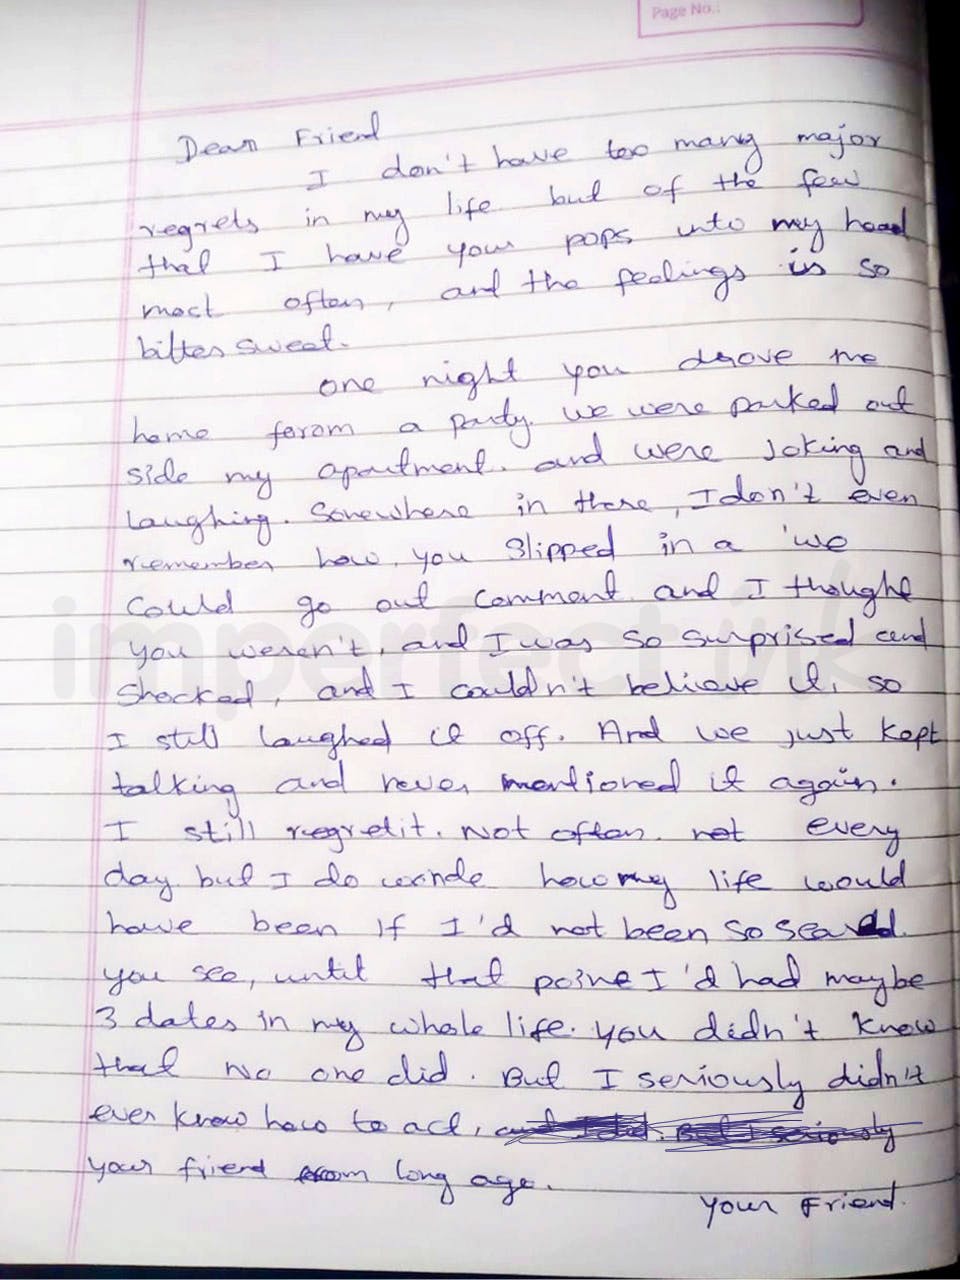 Page No.:
Dear Friend
I don't have too many major
regrets in my life but of the few
that I have your pops into my head
most often, and the feelings is so
bitter sweet.
one night you drove me
home ferom a party. we were parked out
side my apartment. and were joking and
laughing. Somewhere in there, I don't even
remember how, you slipped in a 'we
could go out comment. and I thought
you weren't, and I was so surprised and
shocked, and I couldn't believe it, so
I still laughed it off. And we just kept
talking and never mentioned it again.
I still regretit. Not often. not every
day. but I do wonde how my life would
have been If I'd not been so
you see, until that poine I'd had maybe
3 dates in my whole life. you didn't know
that No one did. But I seriously didn't
ever know how to act,
your friend from long age.
your Friend.
imperfect ink